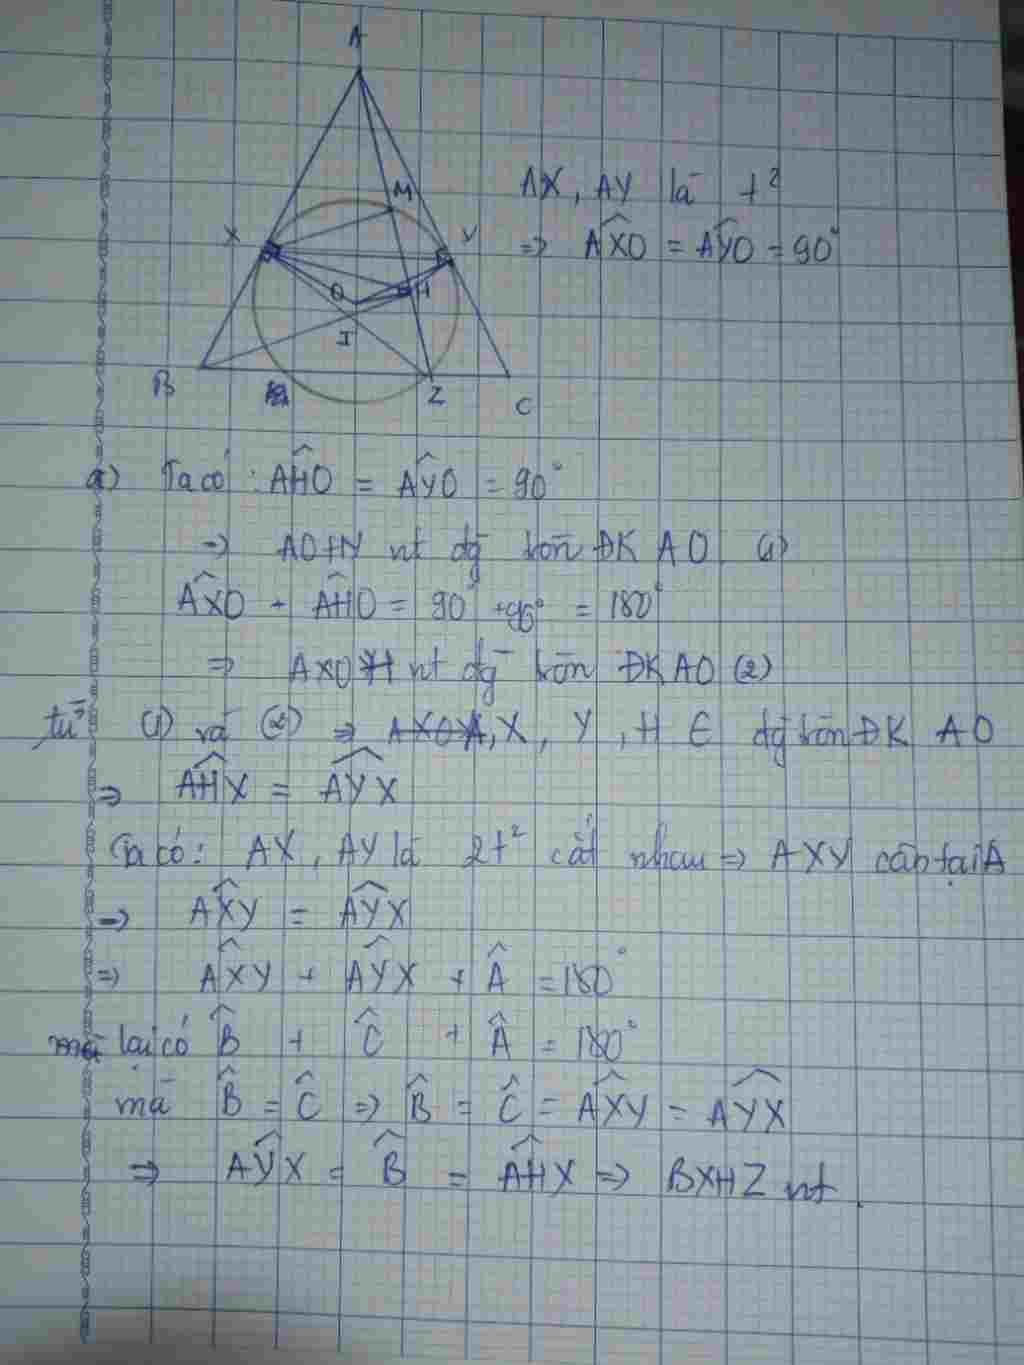 A
M
X
Y
O
H
I
B
Z
C
AX, AY là t²
=> AX̂O = AŶO = 90°
a) Ta có : AĤO = AŶO = 90°
=> AOHY nt đg tròn ĐK AO (1)
AX̂O + AĤO = 90° + 90° = 180°
=> AXOH nt đg tròn ĐK AO (2)
từ (1) và (2) => A, X, Y, H ∈ đg tròn ĐK AO
=> AĤX = AŶX
Ta có: AX, AY là 2t² cắt nhau => AXY cân tại A
=> AX̂Y = AŶX
=> AX̂Y + AŶX + Â = 180°
lại có B̂ + Ĉ + Â = 180°
mà B̂ = Ĉ => B̂ = Ĉ = AX̂Y = AŶX
=> AŶX = B̂ = AĤX => BXHZ nt.